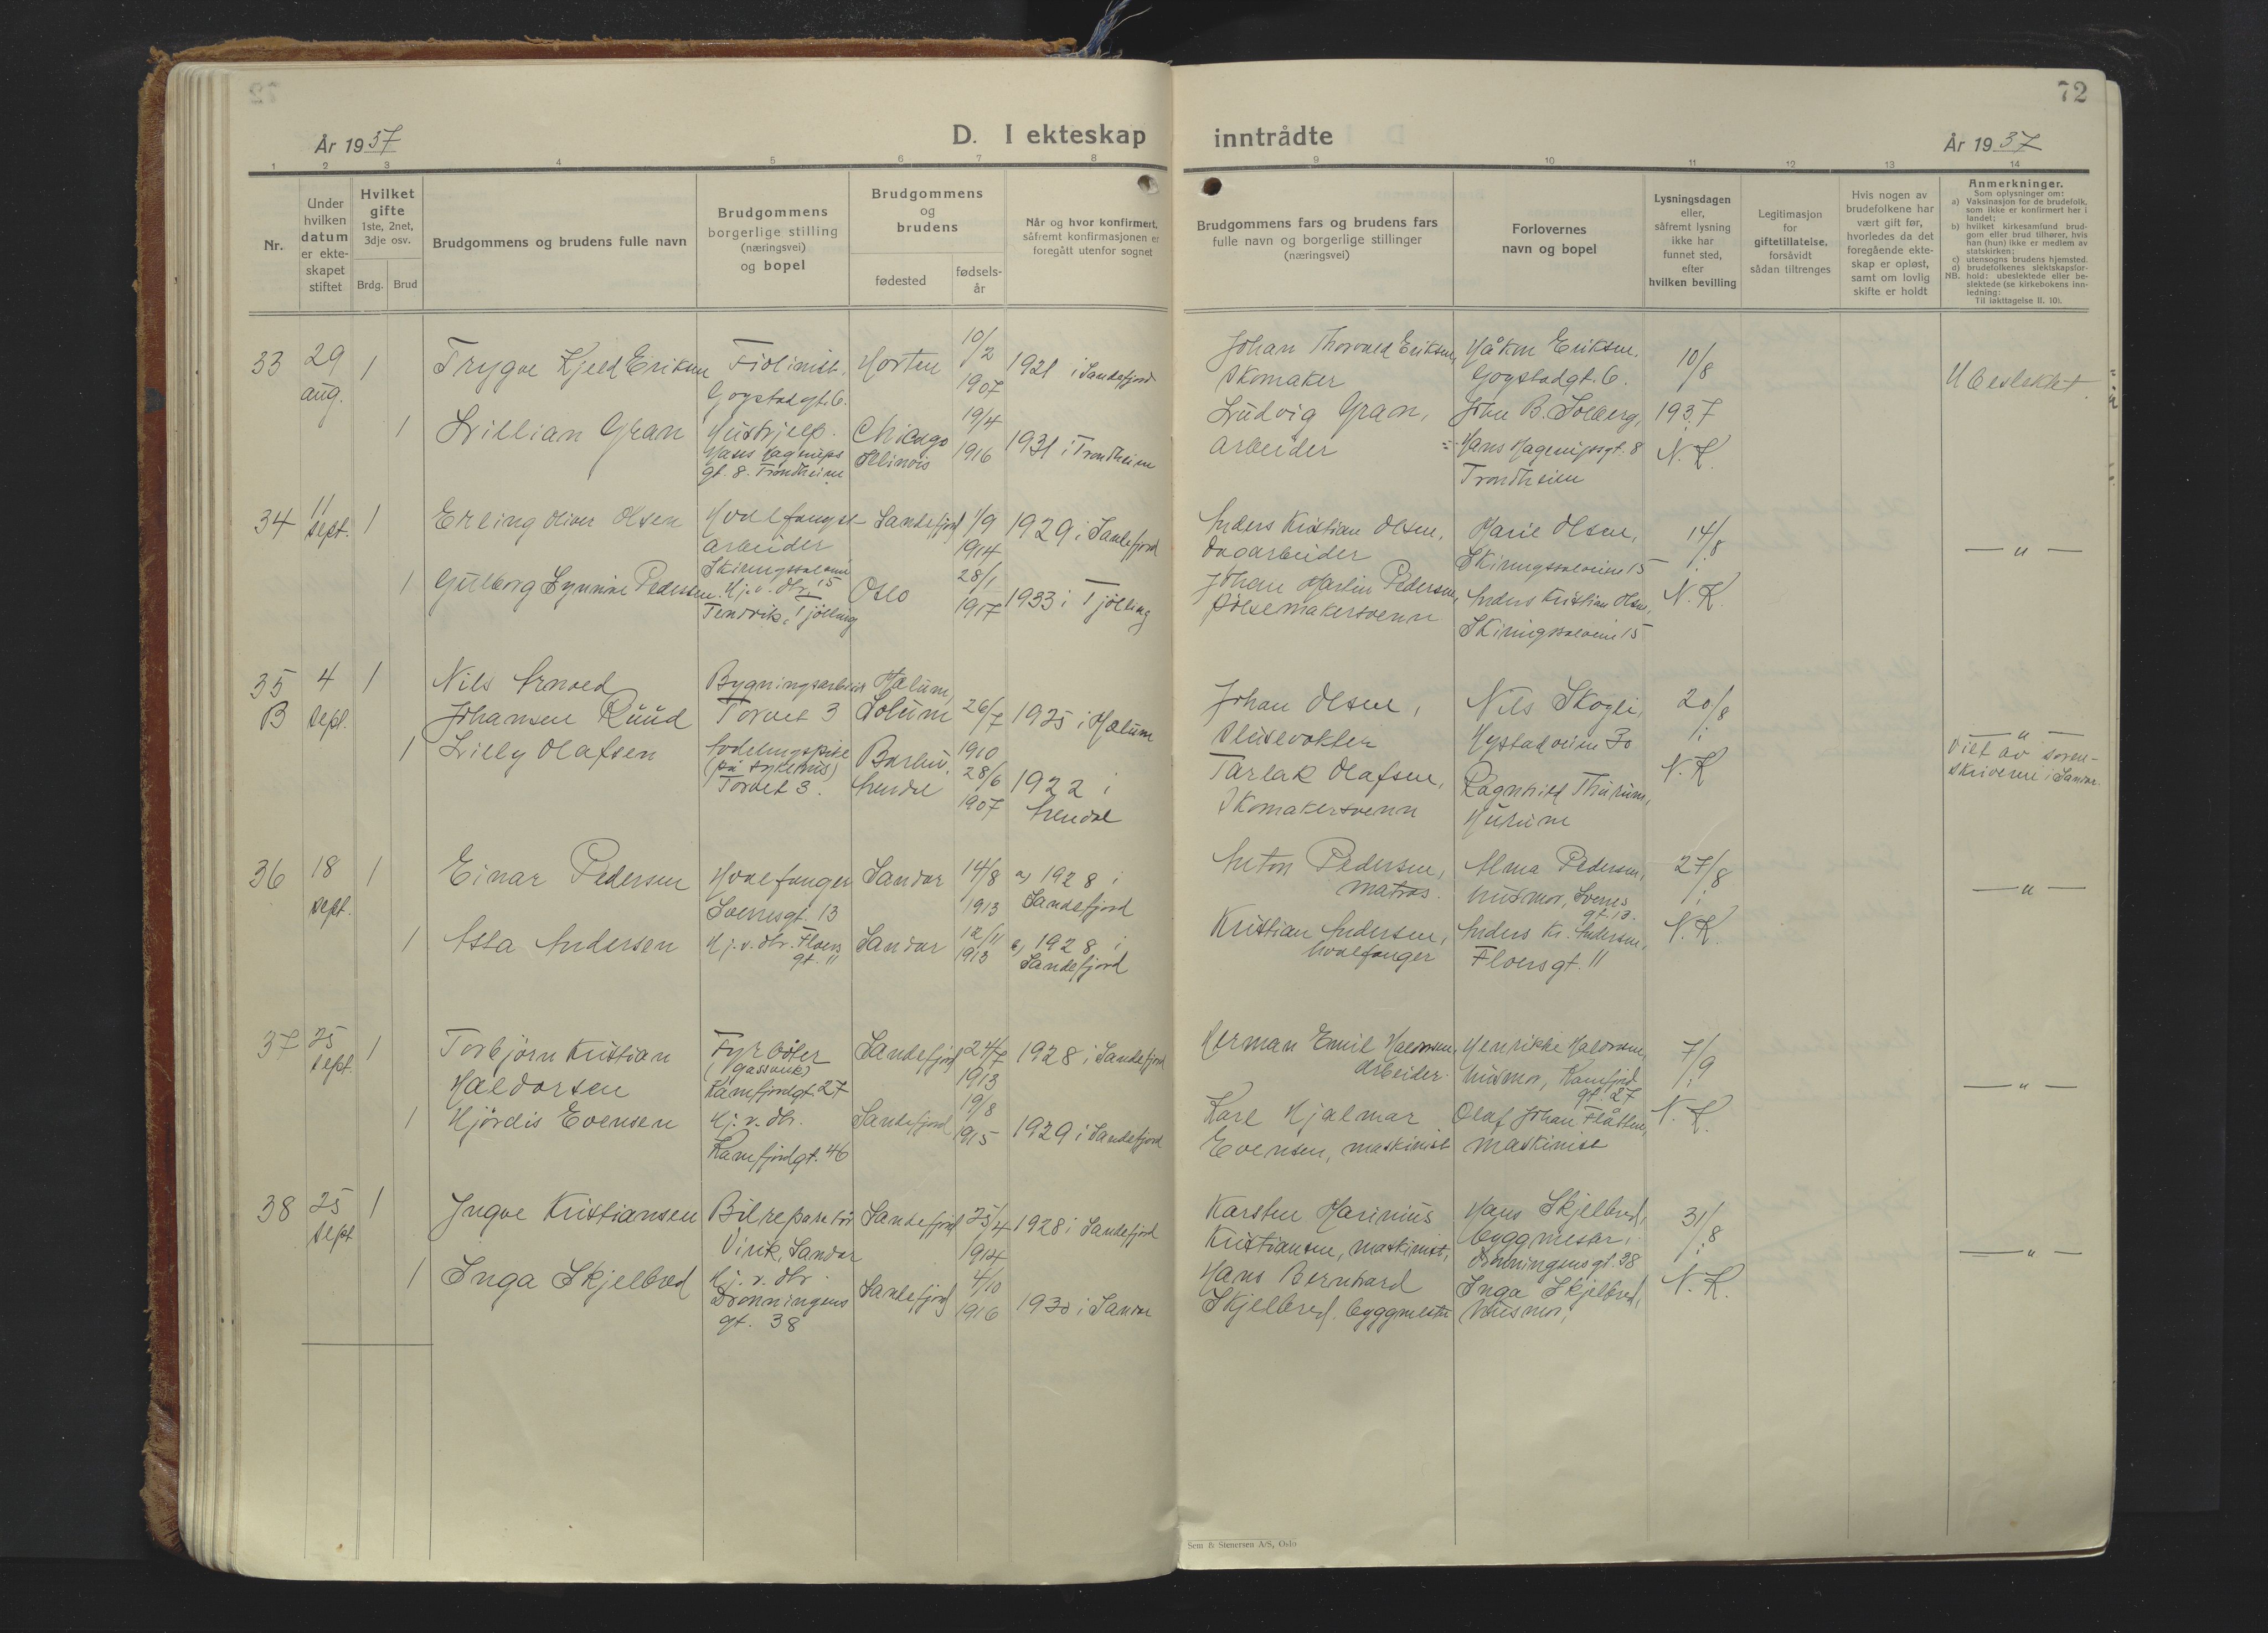 72
År 1937
D. I ekteskap inntrådte
År 1937
1 2 3 4 5 6 7 8 9 10 11 12 13 14
Nr.
Under hvilken datum er ekteskapet stiftet
Hvilket gifte 1ste, 2net, 3dje osv.
Brdg. Brud
Brudgommens og brudens fulle navn
Brudgommens borgerlige stilling (næringsvei) og bopel
Brudgommens og brudens
fødested
fødsels-år
Når og hvor konfirmert, såfremt konfirmasjonen er foregått utenfor sognet
Brudgommens fars og brudens fars fulle navn og borgerlige stillinger (næringsvei)
Forlovernes navn og bopel
Lysningsdagen eller, såfremt lysning ikke har funnet sted, efter hvilken bevilling
Legitimasjon for giftetillatelse, forsåvidt sådan tiltrenges
Hvis nogen av brudefolkene har vært gift før, hvorledes da det foregående ekteskap er opløst, samt om lovlig skifte er holdt
Anmerkninger.
Som oplysninger om:
a) Vaksinasjon for de brudefolk, som ikke er konfirmert her i landet;
b) hvilket kirkesamfund brudgom eller brud tilhører, hvis han (hun) ikke er medlem av statskirken;
c) utensogns brudens hjemsted.
d) brudefolkenes slektskapsforhold: ubeslektede eller beslektede (se kirkebokens innledning:
NB.
Til iakttagelse II. 10).
33
29
aug.
1
Trygve Kjeld Eriksen
Fiolinist.
Gogstadgt. 6.
Horten
10/2
1907
1921 i Sandefjord
Johan Thorvald Eriksen,
Skomaker
Håkon Eriksen.
Gogstadgt. 6.
10/8
1937
N. K.
Ubeslektet.
1
Lillian Gran
Hushjelp.
Hans Hagerups
gt. 8. Trondheim
Chicago
Illinois
19/4
1916
1931 i Trondheim
Ludvig Gran,
arbeider
John B. Solberg,
Hans Hagerupsgt. 8
Trondheim
34
11
sept.
1
Erling Oliver Olsen
Hvalfangst
arbeider
Skiringssalveien
15
Sandefjord
1/9
1914
1929 i Sandefjord
Anders Kristian Olsen,
dagarbeider
Marie Olsen,
Skiringssalveien 15
14/8
N. K.
— " —
1
Gulborg Synnøve Pedersen
Hj. v. dr.
Tenvik, Tjølling
Oslo
28/1
1917
1933 i Tjølling
Johan Martin Pedersen,
pølsemakersvenn
Anders Kristian Olsen,
Skiringssalveien 15
35
B
4
sept.
1
Nils Arnold
Johansen Ruud
Bygningsarbeider
Torvet 3
Mælum,
Solum
26/7
1910
1925 i Mælum
Johan Olsen,
Slusevokter
Nils Skogli,
Nystadveien 30
20/8
N. K
— " —
Viet av soren-
skriveren i Sandar.
1
Lilly Olafsen
Avdelingspike
(på sykehus)
Torvet 3.
Barbu,
Arendal
28/6
1907
1922 i
Arendal
Tarlak Olafsen,
Skomakersvenn
Ragnhild Thurum,
Hurum
36
18
sept.
1
Einar Pedersen
Hvalfanger
Sverresgt. 13
Sandar
14/8
1913
a) 1928 i
Sandefjord
Anton Pedersen,
matros.
Alma Pedersen,
husmor, Sverres
gt. 13.
27/8
N. K.
— " —
1
Asta Andersen
Hj. v. dr. Floers
gt. 11
Sandar
12/11
1913
b) 1928 i
Sandefjord
Kristian Andersen,
hvalfanger
Anders Kr. Andersen,
Floersgt. 11
37
25
sept.
1
Torbjørn Kristian
Haldorsen
Fyrbøter
(gassverk)
Kamfjordgt. 27
Sandefjord
24/7
1913
1928 i Sandefjord
Herman Emil Haldorsen,
arbeider.
Henrikke Haldorsen,
husmor, Kamfjord
gt. 27
7/9
N. K.
— " —
1
Hjørdis Evensen
Hj. v. dr.
Kamfjordgt. 46
Sandefjord
19/8
1915
1929 i Sandefjord
Karl Hjalmar
Evensen, maskinist
Olaf Johan Flåtten,
maskinist
38
25
sept
1
Yngve Kristiansen
Bilreparatør
Virik, Sandar
Sandefjord
25/4
1914
1928 i Sandefjord
Karsten Marinius
Kristiansen, maskinist,
Hans Skjelbred,
byggmester,
Dronningensgt. 38
31/8
N. K.
— " —
1
Inga Skjelbred
Hj. v. dr.
Dronningens
gt. 38
Sandefjord
4/10
1916
1930 i Sandar
Hans Bernhard
Skjelbred, byggmester
Inga Skjelbred,
husmor,
Sem & Stenersen A/S, Oslo